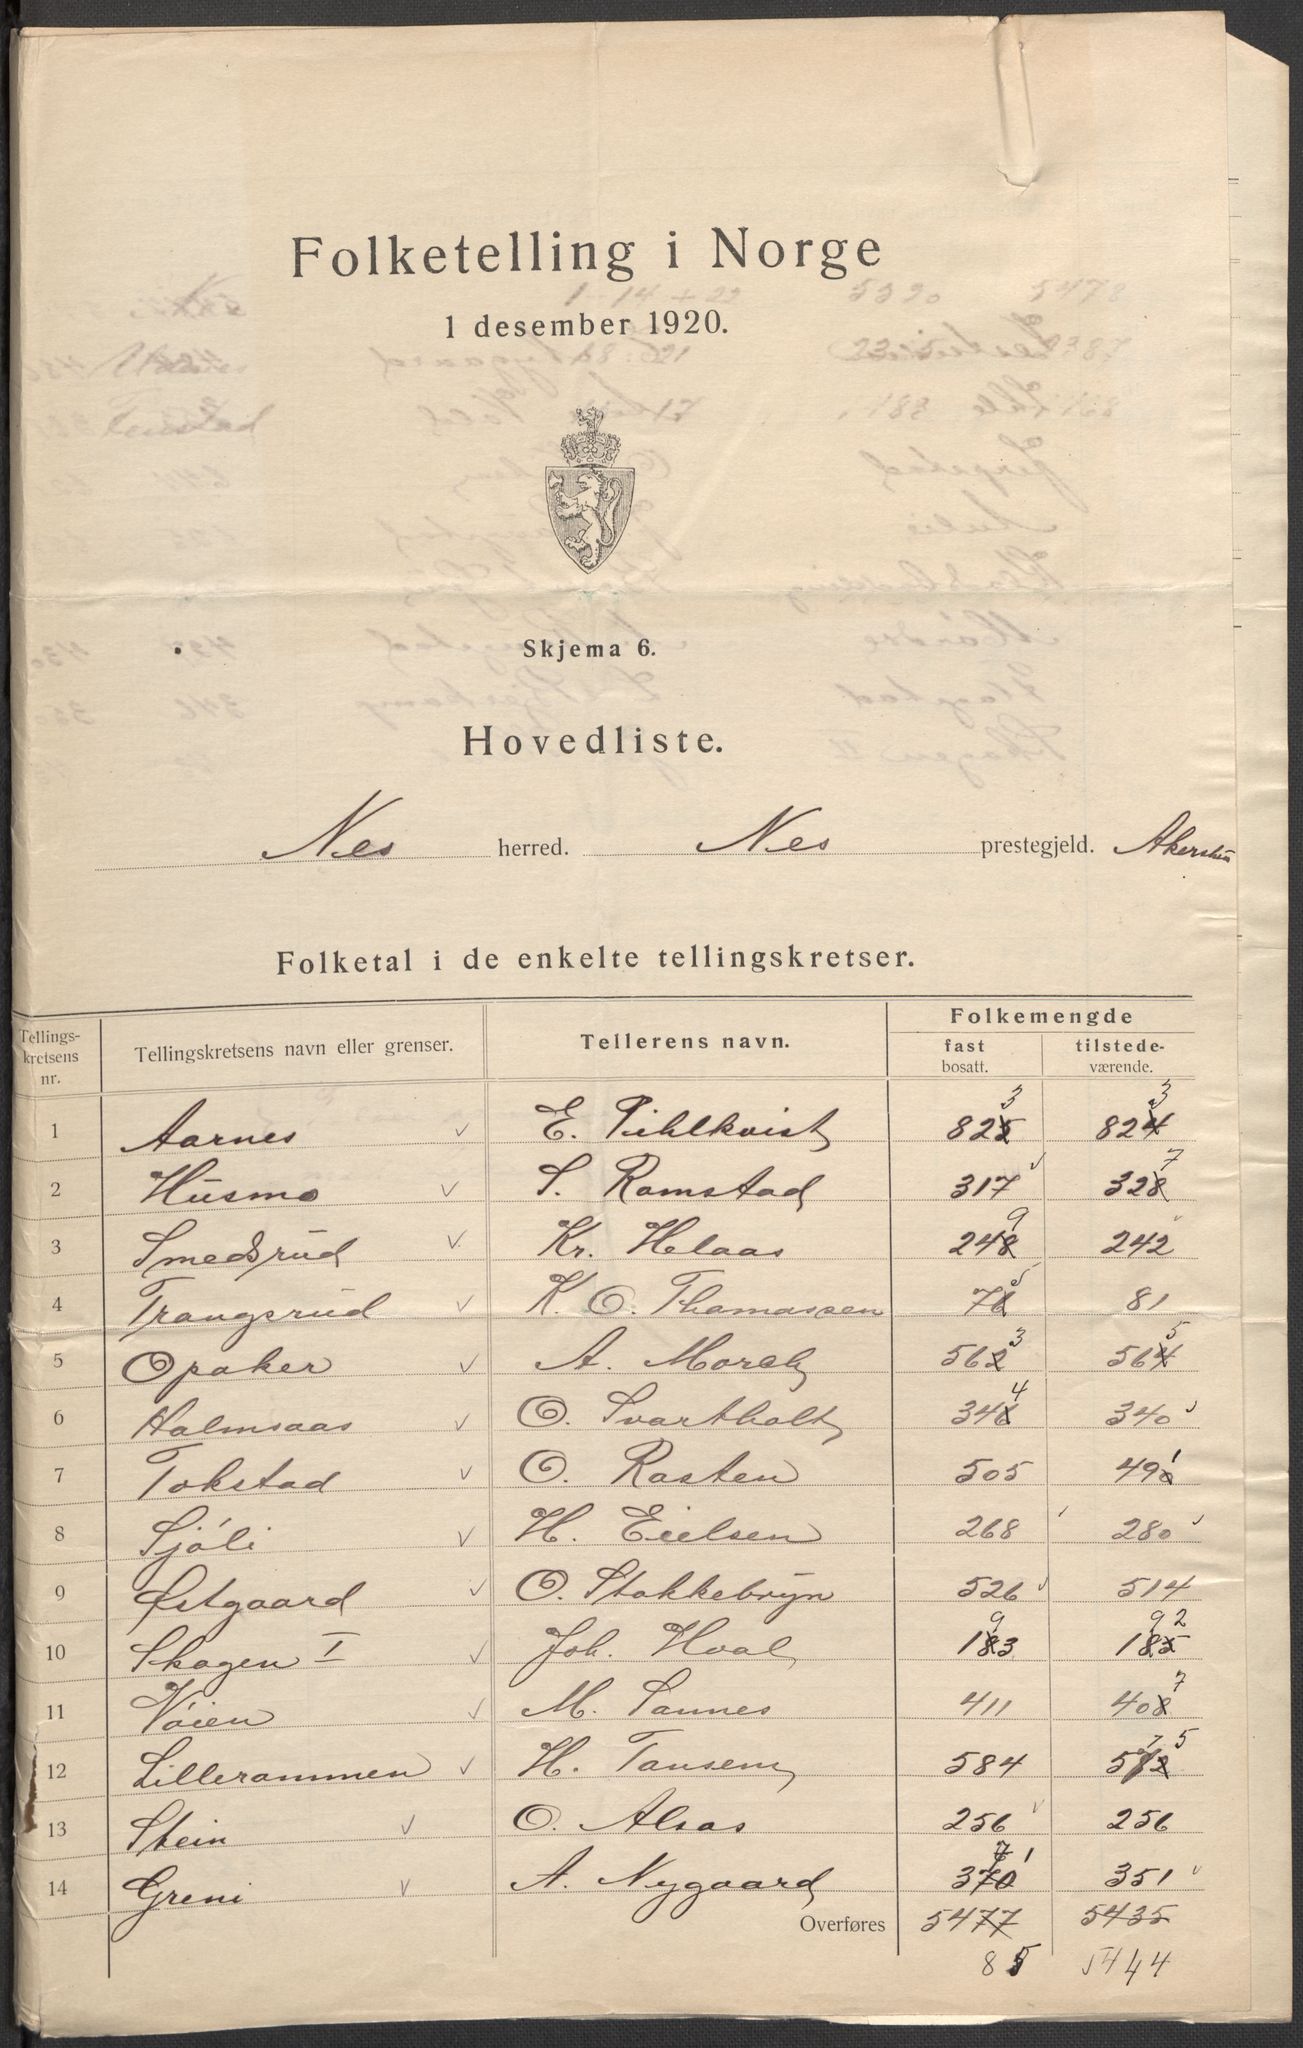 Folketelling i Norge
1 desember 1920.
Skjema 6.
Hovedliste.
Nes herred. Nes prestegjeld. Akershus
Folketal i de enkelte tellingskretser.
Tellings-kretsens nr. Tellingskretsens navn eller grenser. Tellerens navn. Folkemengde
fast bosatt. tilstede-værende.
1 Aarnes E. Pihlkvist 825 3 824 3
2 Husmo S. Romstad 317 328 7
3 Smedsrud Kr. Helaas 248 9 242
4 Trangsrud K. O. Thomassen 81
5 Opaker A. Morch 562 3 564 5
6 Halmsaas O. Svartholt 346 4 340
7 Tokstad O. Rasten 505 490 1
8 Sjóli H. Eielsen 268 280
9 Østgaard O. Stokkebryn 526 514
10 Skogen I Joh. Hval 183 9 185 92
11 Vóien M. Sannes 411 408 7
12 Lillerommen H. Tansem 584 572 5
13 Stein O. Alsos 256 256
14 Greni A. Nygaard 370 71 351
Overføres 5477 5435
85 5444